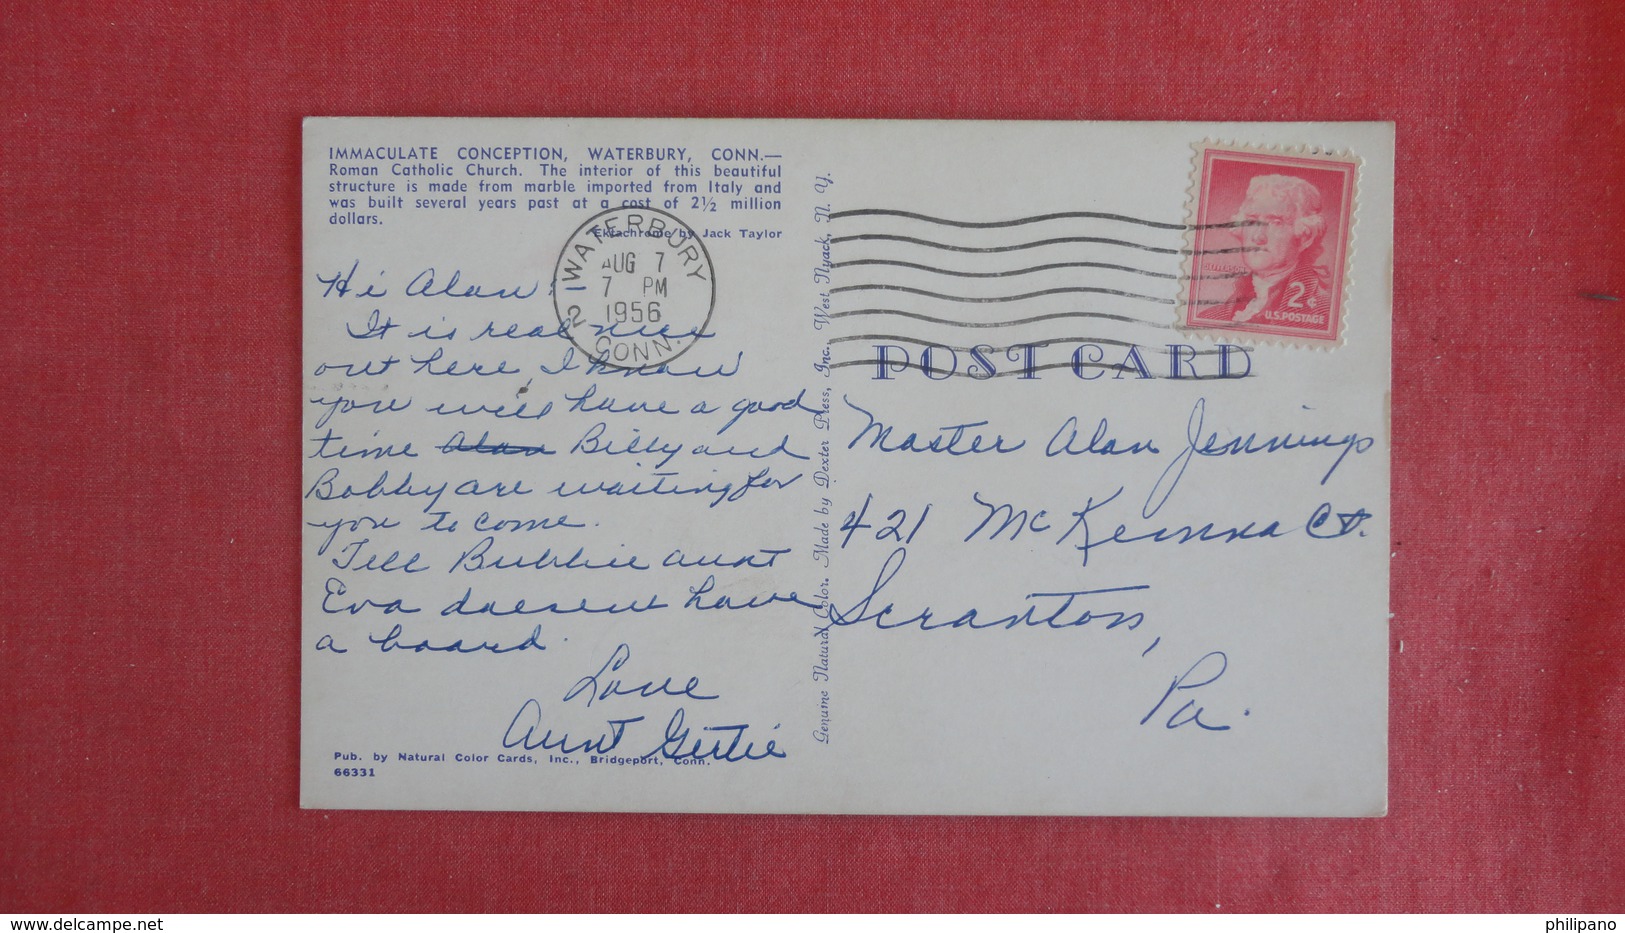 IMMACULATE CONCEPTION, WATERBURY, CONN.—
Roman Catholic Church. The interior of this beautiful
structure is made from marble imported from Italy and
was built several years past at a cost of 2½ million
dollars.
Ektachrome by Jack Taylor
WATERBURY
AUG 7
7 PM
1956
2 CONN.
Hi Alan:
It is real nice
out here, I know
you will have a good
time Alan Billy and
Bobby are waiting for
you to come.
Tell Bubbie aunt
Eva doesent have
a board.
Love
Aunt Gertie
Pub. by Natural Color Cards, Inc., Bridgeport, Conn.
66331
Genuine Natural Color. Made by Dexter Press, Inc., West Nyack, N. Y.
2¢
U.S. POSTAGE
POST CARD
Master Alan Jennings
421 McKenna Ct.
Scranton,
Pa.
delcampe.net
philipano